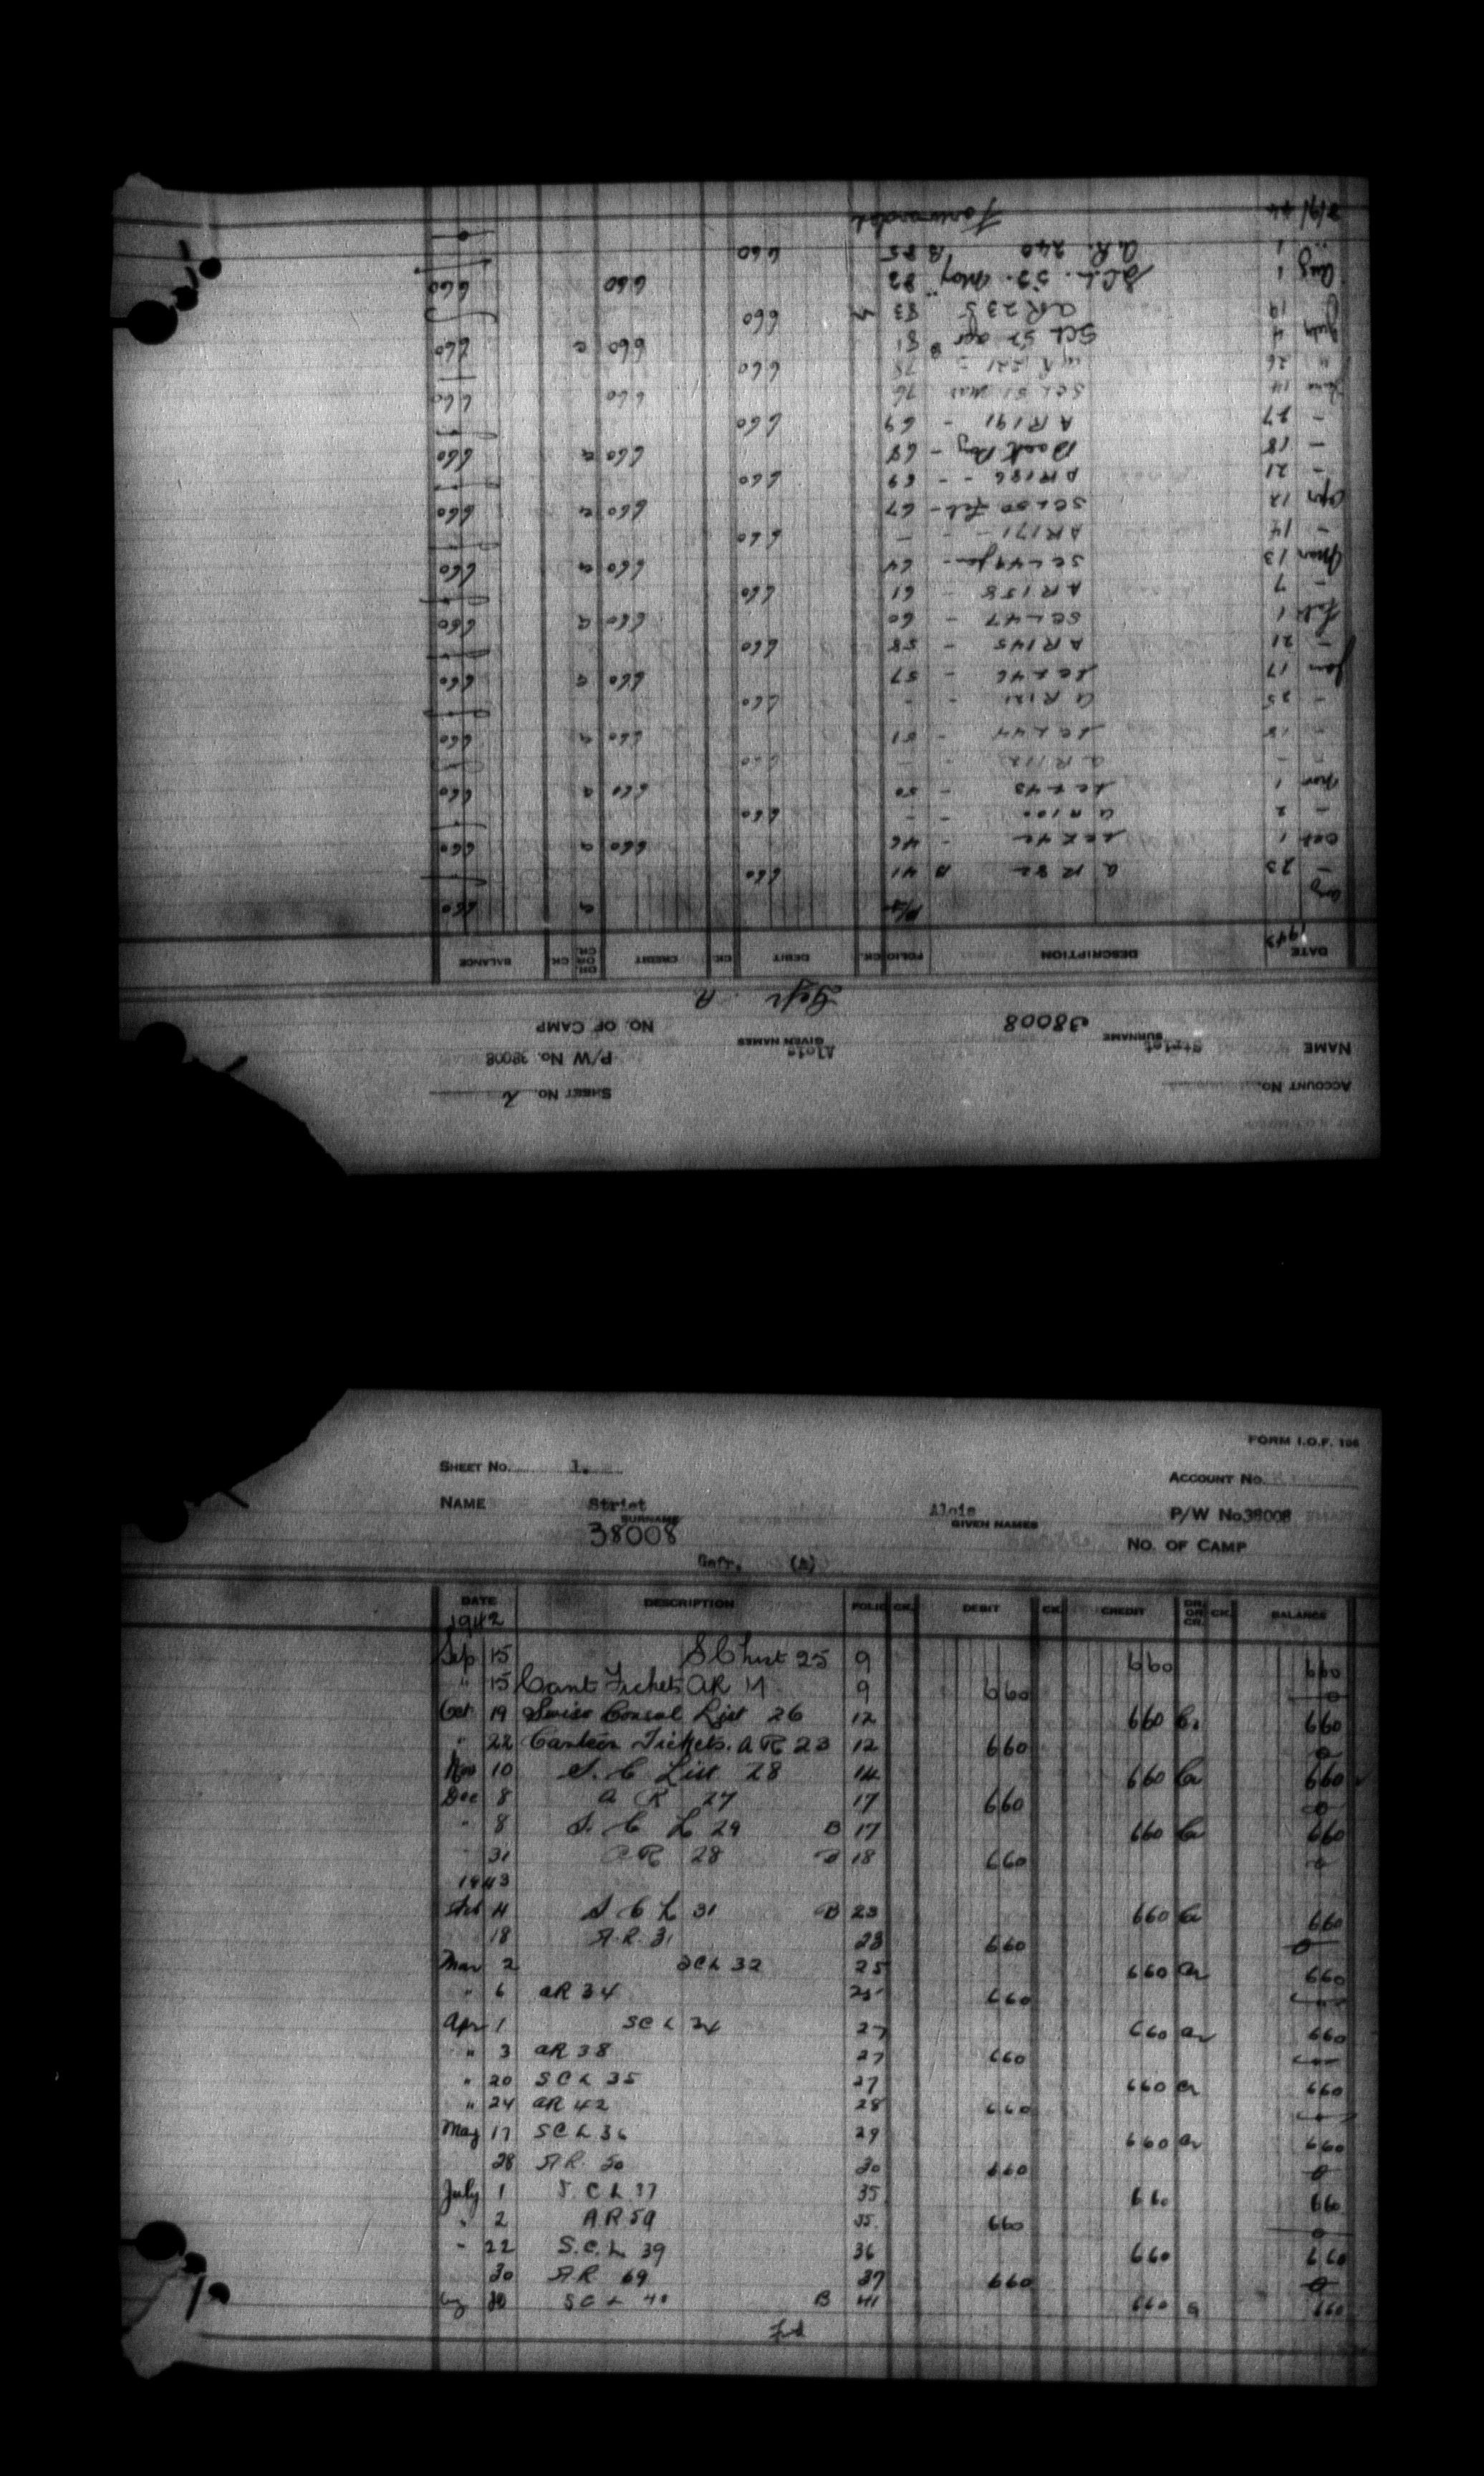 SHEET No. 2
ACCOUNT No.
P/W No. 38008
NAME Strist SURNAME Alois GIVEN NAMES
38008
NO. OF CAMP
Gefr A
DATE DESCRIPTION FOLIO CK. DEBIT CK. CREDIT DR. OR CR. CK. BALANCE
1943
Aug 660
- 23 a R 82 B 41 660
Oct 1 46 660 660
- 2 a R 100 - - 660
Nov 1 SCL 43 - 50 660 660
- - a R 112 - - 660
- 18 SCL 44 - 51 660 660
- 25 a R 121 - - 660
Jan 17 SCL 46 - 57 660 660
- 21 AR 145 - 58 660
Feb 1 SCL 47 - 60 660 a 660
- 7 AR 158 - 61 660
Mar 13 SCL 49 Jan - 64 660 a 660
- 14 AR 171 - - 660
Apr 12 SCL 50 Feb - 67 660 660
- 21 AR 186 - - 69 660
- 18 Back Pay - 68 660 a 660
- 27 AR 191 - 69 660
June 14 SCL 51 Mar 76 660 660
" 26 78 660
July 4 SCL 52 apr 81 660 660
19 AR 235 83 660
Aug 1 S.C.L. 53. May 660 660
" 1 a.R. 240 B 85 660
Forwarded
FORM I.O.F. 106
SHEET No. 1.
ACCOUNT No.
NAME Strist SURNAME Alois GIVEN NAMES P/W No 38008
38008
NO. OF CAMP
Gefr. (A)
DATE DESCRIPTION FOLIO CK. DEBIT CK. CREDIT DR. OR CR. CK. BALANCE
1942
Sep 15 S C List 25 9 660 660
" 15 Cant Tickets AR 9 660 0
Oct 19 Swiss Consul List 26 12 660 Cr 660
" 22 Canteen Tickets. AR 23 12 660 0
Nov 10 S. C List 28 14 660 Cr 660
Dec 8 a R 27 17 660 0
" 8 S. C L 29 B 17 660 Cr 660
31 a R 28 18 660 0
1943
Feb 4 S C L 31 B 23 660 Cr 660
18 A.R. 31 23 660 0
Mar 2 SCL 32 25 660 Cr 660
" 6 aR 34 25 660
Apr 1 SCL 34 27 660 Cr 660
" 3 aR 38 27 660
" 20 SCL 35 27 660 Cr 660
" 24 aR 42 28 660
May 17 SCL 36 29 660 Cr 660
28 AR. 50 30 660 0
July 1 S. C L 37 35 660 660
" 2 AR 59 35. 660 0
" 22 S.C.L. 39 36 660 660
30 AR 69 37 660 0
SCL 40 B 41 660 660
Fwd